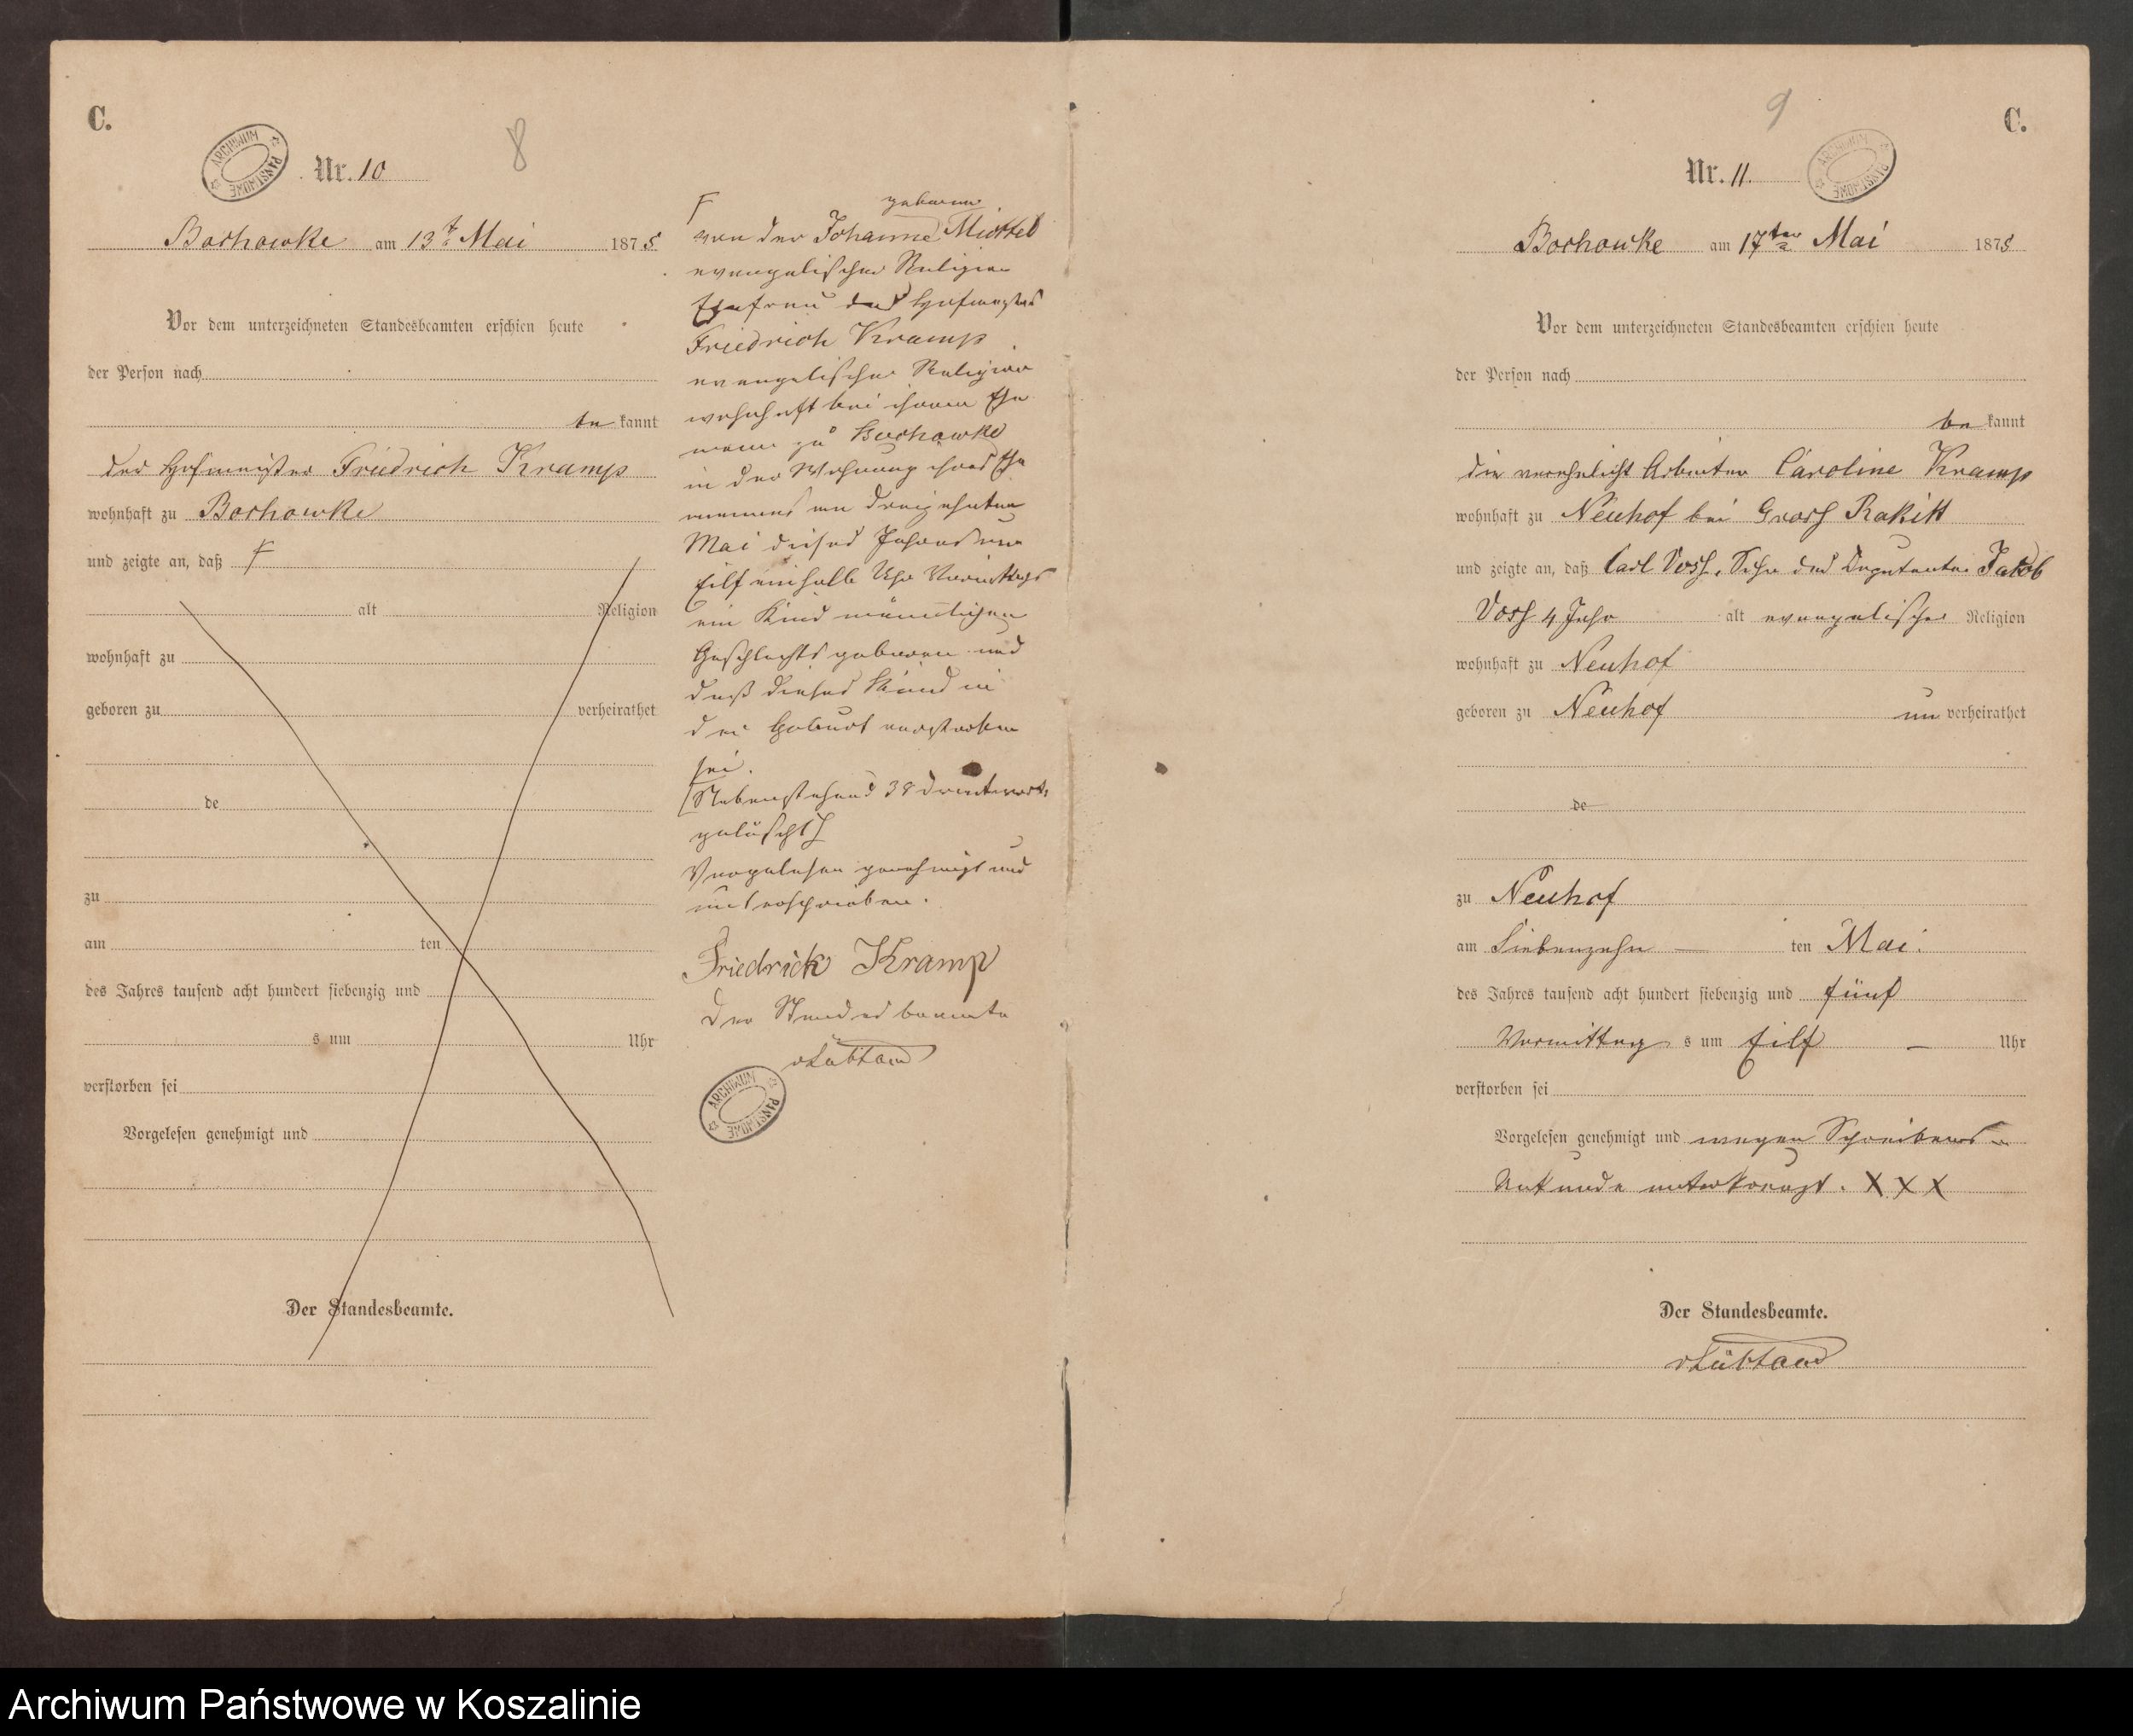 C.
ARCHIWUM PAŃSTWOWE
8
Nr. 10
Borkowke am 13t. Mai 1875
Vor dem unterzeichneten Standesbeamten erschien heute
der Person nach
be kannt
der Hofmeister Friedrich Kramp
wohnhaft zu Borkowke
und zeigte an, daß F
alt Religion
wohnhaft zu
geboren zu verheirathet
de
zu
am ten
des Jahres tausend acht hundert siebenzig und
s um Uhr
verstorben sei
Vorgelesen genehmigt und
Der Standesbeamte.
F geborene
von der Johanne
evangelischer Religion
Ehefrau des Hofmeisters
Friedrich Kramp
evangelischer Religion
wohnhaft bei ihrem Ehe
mann zu Borkowke
in der Wohnung ihres Ehe
mannes am dreizehnten
Mai dieses Jahres um
Eilf einhalb Uhr Vormittags
ein Kind männlichen
Geschlechts geboren und
daß dieses Kind in
der Geburt verstorben
sei.
Nebenstehend 38 Druckworte
gelöscht
Vorgelesen genehmigt und
unterschrieben.
Friedrick Kramp
Der Standesbeamte
ARCHIWUM PAŃSTWOWE
9
C.
Nr. 11.
ARCHIWUM PAŃSTWOWE
Borkowke am 17ten Mai 1875
Vor dem unterzeichneten Standesbeamten erschien heute
der Person nach
be kannt
die verehelicht Arbeiter Caroline Kramp
wohnhaft zu Neuhof bei Gross Rakitt
und zeigte an, daß Carl Voss, Sohn des Deputanten Jakob
Voss 4 Jahr alt evangelischer Religion
wohnhaft zu Neuhof
geboren zu Neuhof un verheirathet
de
zu Neuhof
am Siebenzehn — ten Mai
des Jahres tausend acht hundert siebenzig und fünf
Vormittag s um Eilf — Uhr
verstorben sei
Vorgelesen genehmigt und wegen Schreibens
Unkunde unterkreuzt. X X X
Der Standesbeamte.
Archiwum Państwowe w Koszalinie